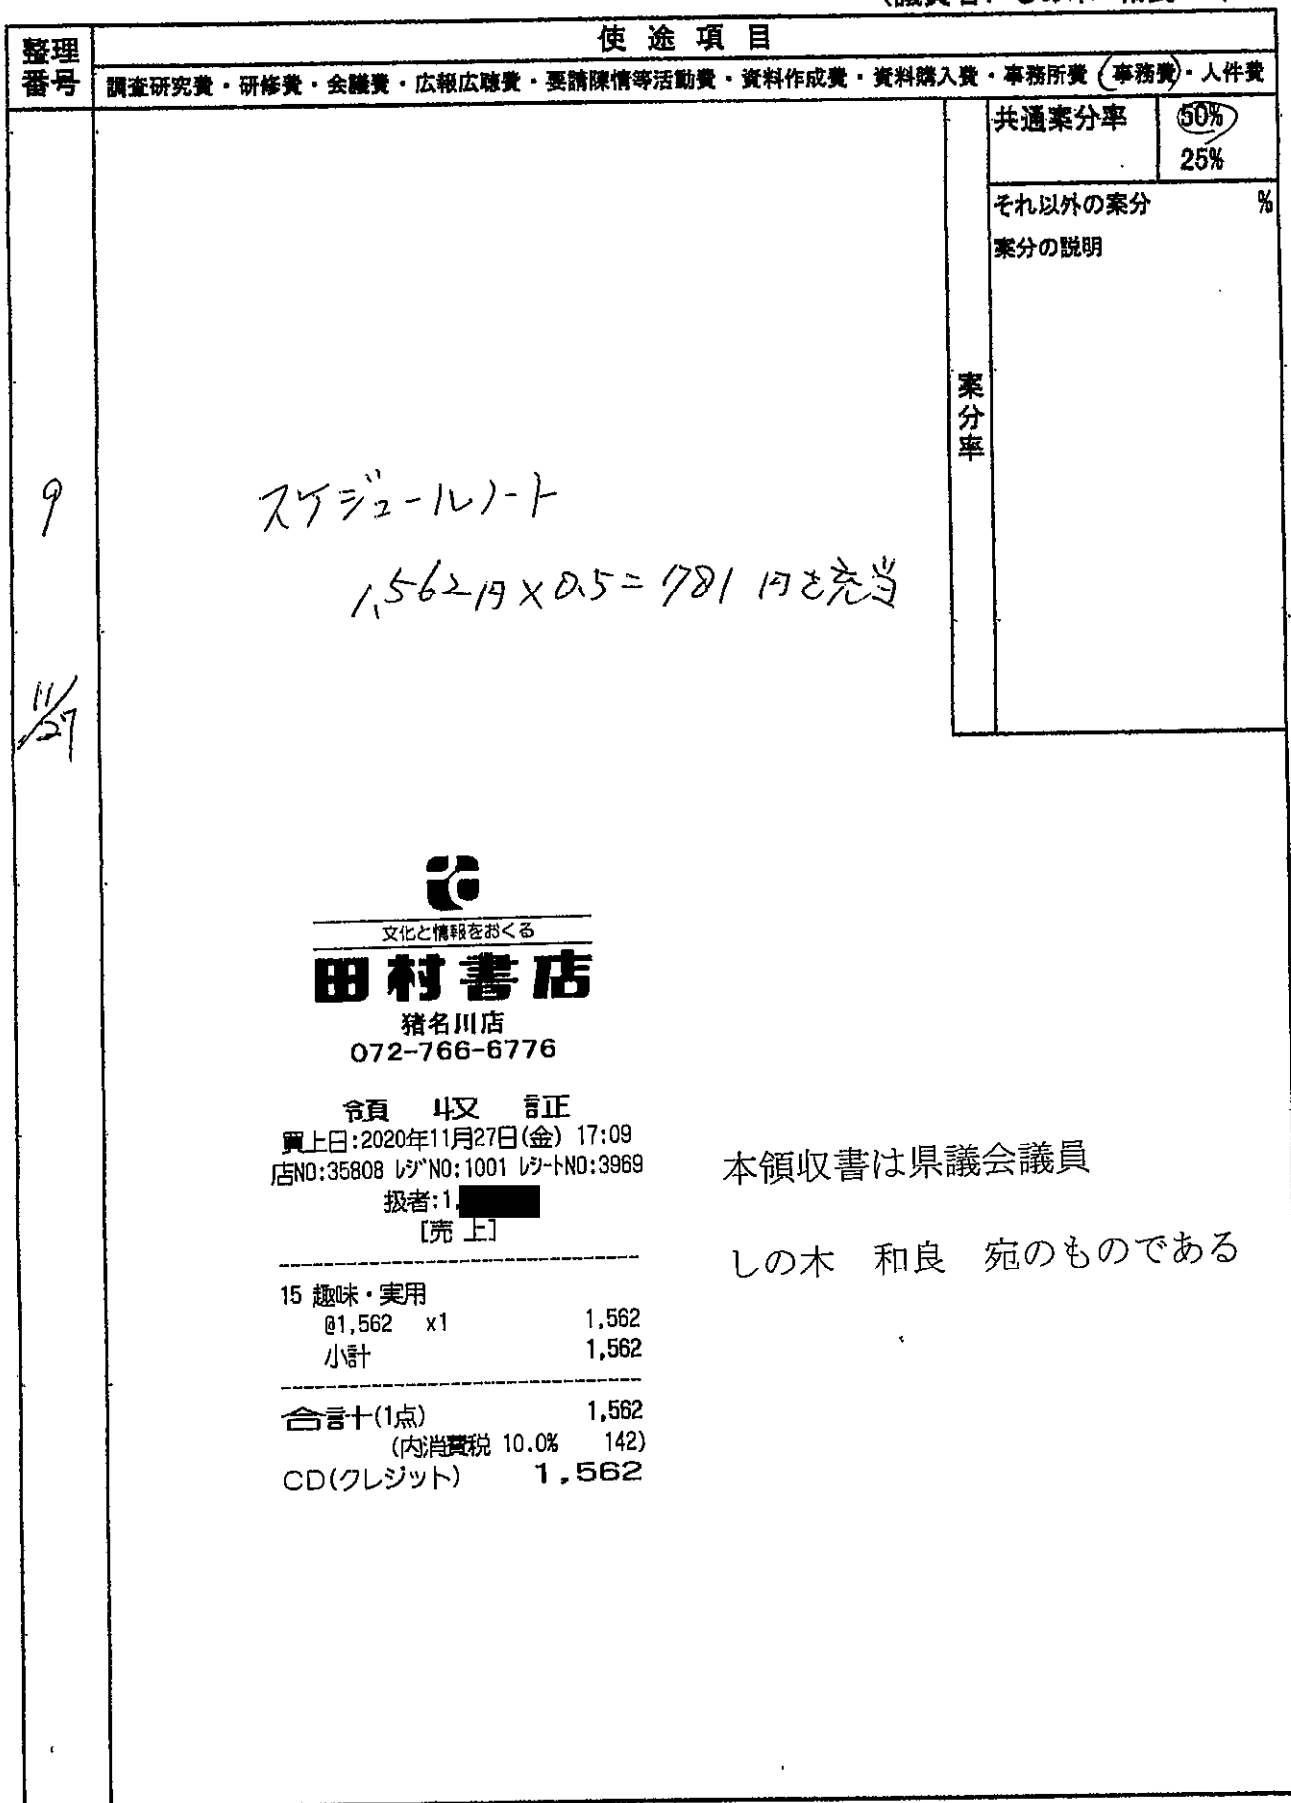 整理番号
使途項目
調査研究費・研修費・会議費・広報広聴費・要請陳情等活動費・資料作成費・資料購入費・事務所費・事務費・人件費
共通案分率 50%
25%
それ以外の案分 %
案分の説明
案分率
9
スケジュールノート
1,562円×0.5=781円を充当
11/27
文化と情報をおくる
田村書店
猪名川店
072-766-6776
領収証
買上日:2020年11月27日(金) 17:09
店NO:35808 レジNO:1001 レシートNO:3969
扱者:1,
[売 上]
15 趣味・実用
@1,562 x1 1,562
小計 1,562
合計(1点) 1,562
(内消費税 10.0% 142)
CD(クレジット) 1,562
本領収書は県議会議員
しの木 和良 宛のものである